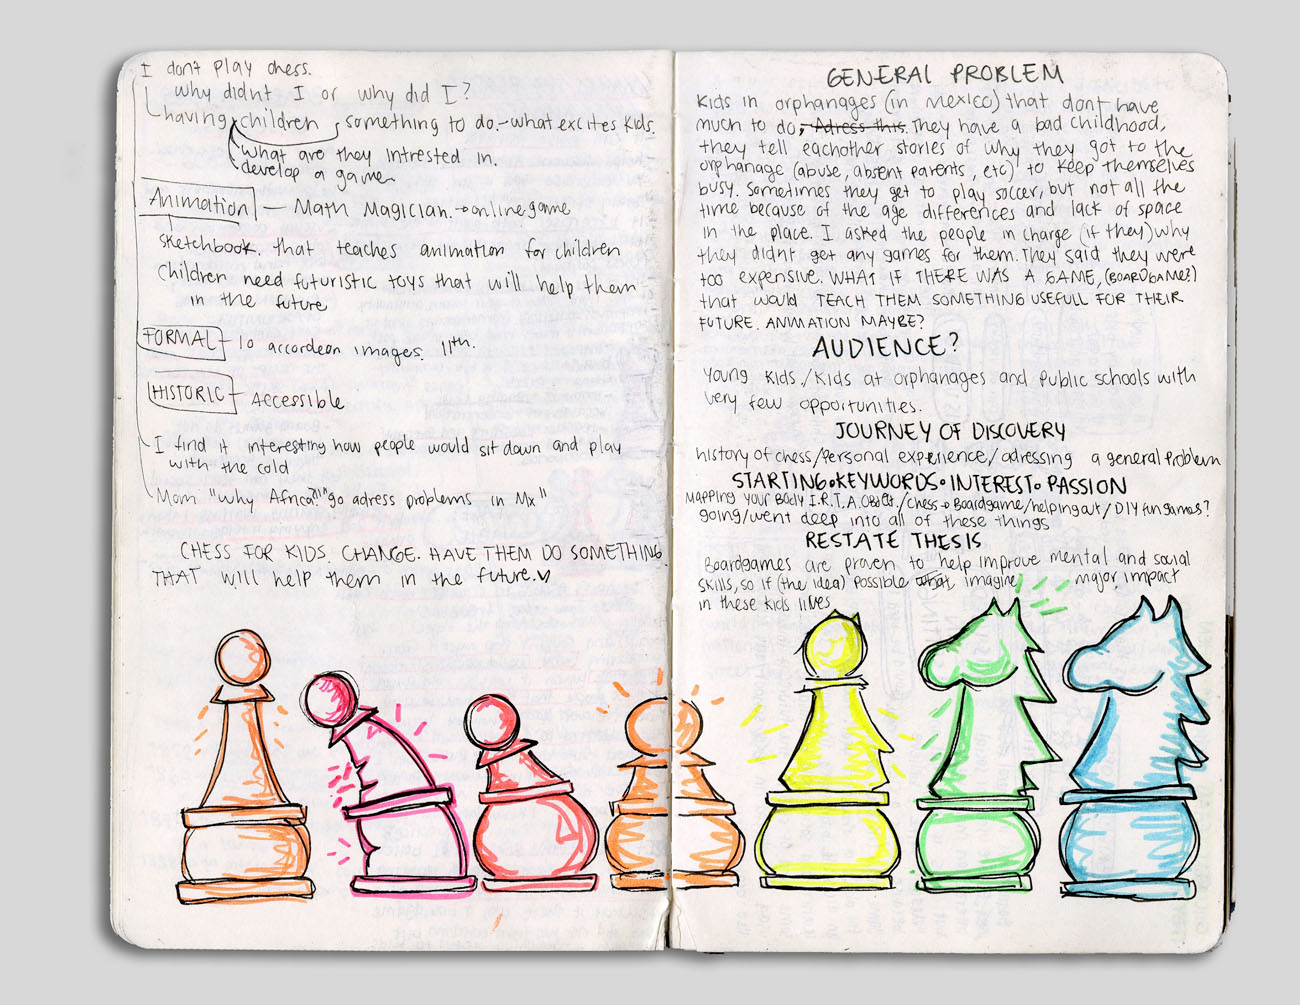 I dont play chess.
why didnt I or why did I?
having children, something to do. - what excites kids.
what are they intrested in.
develop a game
Animation — Math Magician. → online game
sketchbook. that teaches animation for children
children need futuristic toys that will help them
in the future
FORMAL - 10 accordeon images. 11th.
HISTORIC - Accessible
I find it interesting how people would sit down and play
with the cold
Mom "why Africa? go adress problems in Mx"
CHESS FOR KIDS. CHANGE. HAVE THEM DO SOMETHING
THAT will help them in the future.
GENERAL PROBLEM
Kids in orphanages (in mexico) that dont have
much to do, Adress this. They have a bad childhood,
they tell eachother stories of why they got to the
orphanage (abuse, absent parents, etc) to keep themselves
busy. Sometimes they get to play soccer, but not all the
time because of the age differences and lack of space
in the place. I asked the people in charge (if they) why
they didnt get any games for them. They said they were
too expensive. WHAT IF THERE WAS A GAME, (BOARDGAME?)
that would TEACH THEM SOMETHING USEFULL FOR THEIR
FUTURE. ANIMATION MAYBE?
AUDIENCE?
Young Kids./Kids at orphanages and public schools with
very few opportunities.
JOURNEY OF DISCOVERY
history of chess/personal experience/adressing a general problem
STARTING•KEYWORDS•INTEREST•PASSION
Mapping your Body I.R.T.A. Object./chess → Boardgame/helping out/DIY fun games?
going/went deep into all of these things
RESTATE THESIS
Boardgames are proven to help improve mental and social
skills, so if (the idea) possible what, imagine major impact
in these kids lives